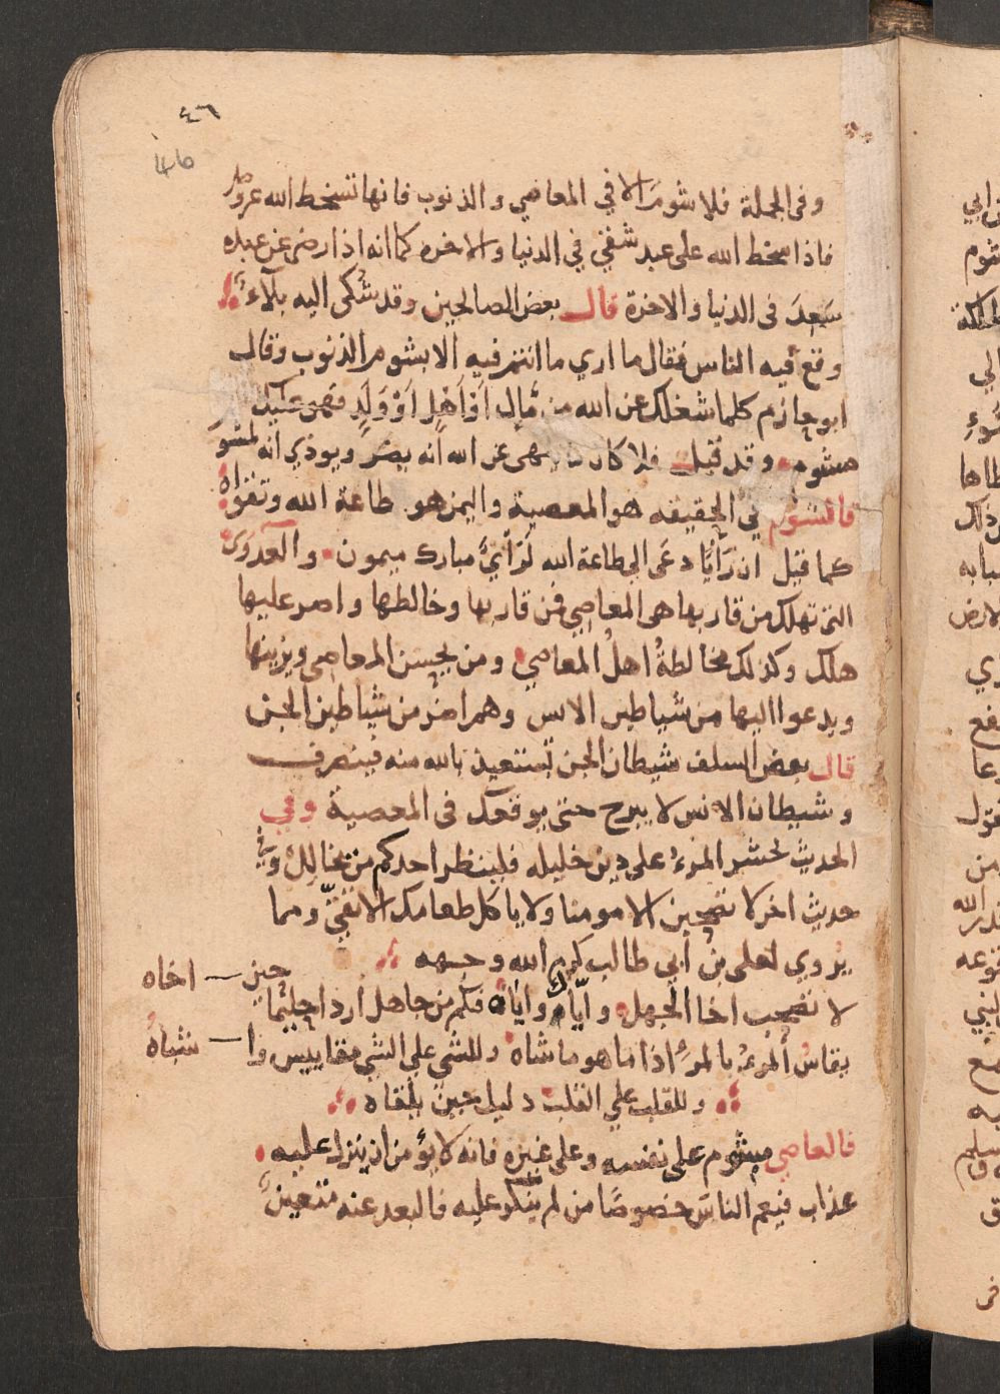 ٤٦
وفي الجملة فلا شوم الا في المعاصي والذنوب فانها تسخط الله عز وجل
فاذا سخط الله على عبد شقي في الدنيا والاخره كما انه اذا رضى عن عبده
سَعِدَ فى الدنيا والاخرة قال بعض الصالحين وقد شكى اليه بلآء
وقع فيه الناس فقال ما اري ما انتم فيه الا بشوم الذنوب وقال
ابو حازم كلما شغلك عن الله من مال اَوْ اَهْلٍ اَوْ وَلَدٍ فهو عليك
مشوم وقد قيل فلا كان
فالشوم في الحقيقه هو المعصية واليمن هو طاعة الله وتقواه
كما قيل ان رَأيًا دعَى الى طاعة الله لرَأيٌ مبارك ميمون والعدوى
التى تهلك من قاربها هى المعاصي فمن قاربها وخالطها واصر عليها
هلك وكذلك مخالطةُ اهلُ المعاصي ومن يحسن المعاصى ويزينها
ويدعوا اليها من شياطين الانس وهم اضر من شياطين الجن
قال بعض السلف شيطان الجن تستعيذ بالله منه فينصرف
وشيطان الانس لا يبرح حتى يوقعك فى المعصية وفي
الحديث يحشر المرءُ على دين خليله فلينظر احدكم من يخالِل وفي
حديث اخر لا تصحبن الا مومنا ولا ياكل طعامك الا تقيّ ومما
يُروي لعلى بن أبي طالب كرم الله وجهه
لا تصحب اخا الجهل واياك واياهُ فكم من جاهل اردا حليمًا حين اخاه
يقاسُ المرءُ بالمرءِ اذا ما هو ما شاه وللشي على الشي مقاييس وا شباهُ
وللقلب علي القلب دليل حين يلقاه
فالعاصي ميشوم على نفسه وعلى غيره فانه لا يؤمن ان ينزل عليه
عذاب فيعم الناسَ خصوصًا من لم ينكر عليه فالبعد عنه متعينٌ